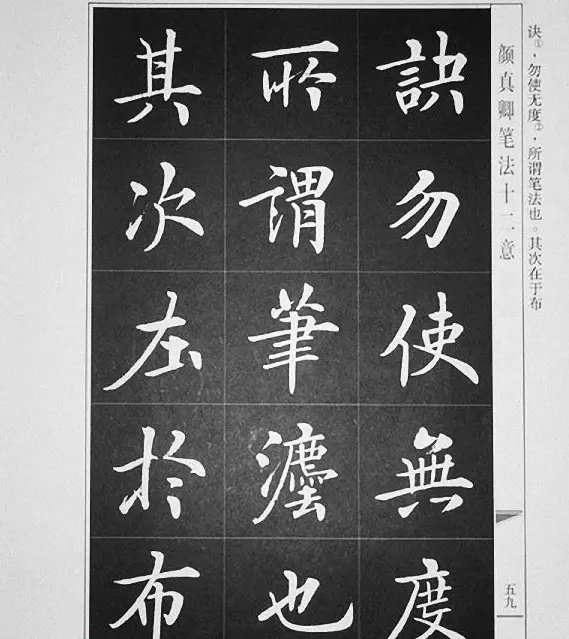 诀①，勿使无度②，所谓笔法也。其次在于布
颜真卿笔法十二意
五九
訣勿使無度
所謂筆灋也
其次在於布